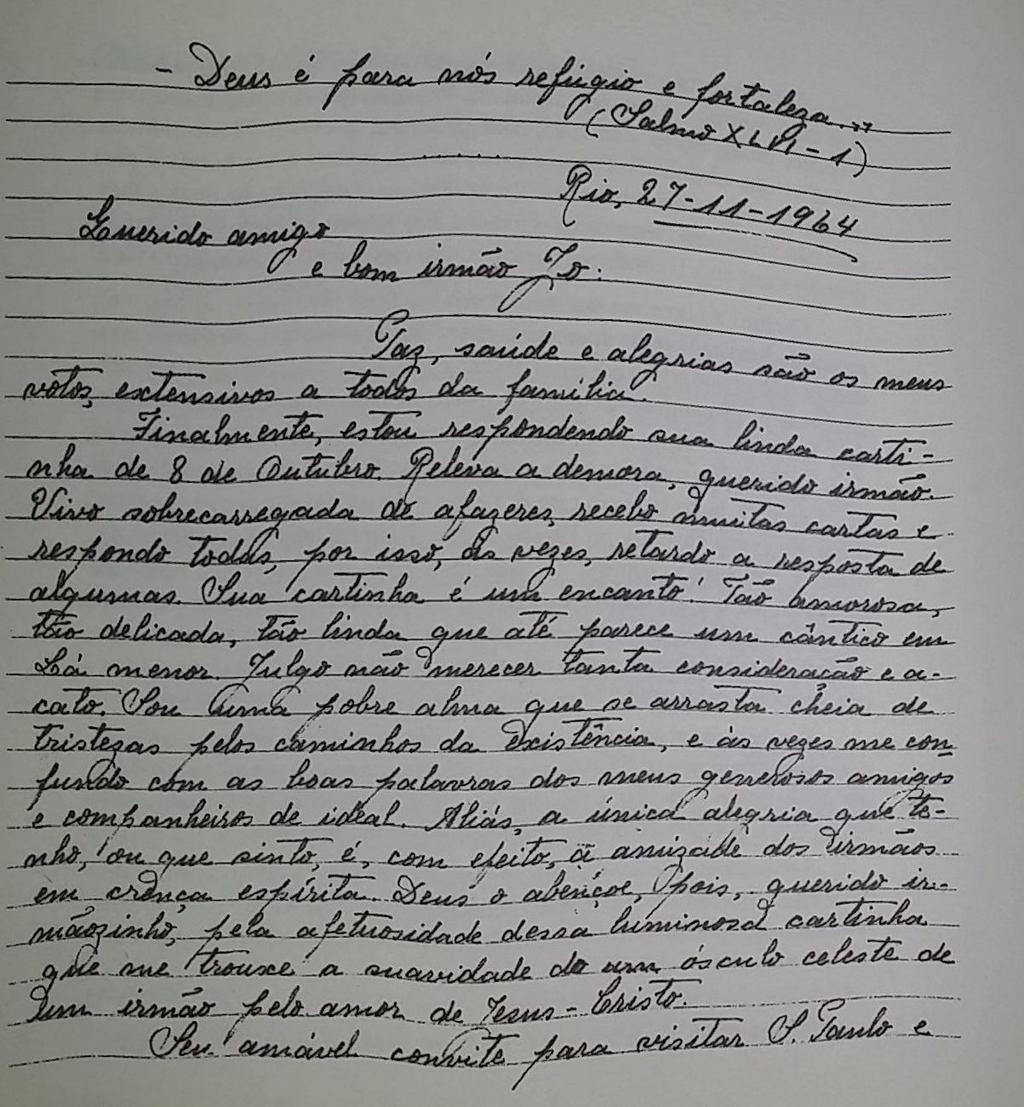 - Deus é para nós refúgio e fortaleza..."
(Salmo XLVI-1)
Rio, 27-11-1964
Querido amigo
e bom irmão Jo:
Paz, saúde e alegrias são os meus
votos, extensivos a todos da família.
Finalmente, estou respondendo sua linda carti-
nha de 8 de Outubro. Releva a demora, querido irmão.
Vivo sobrecarregada de afazeres, recebo muitas cartas e
respondo todas, por isso, às vezes, retardo a resposta de
algumas. Sua cartinha é um encanto! Tão amorosa,
tão delicada, tão linda que até parece um cântico em
Lá menor. Julgo não merecer tanta consideração e a-
cato. Sou uma pobre alma que se arrasta cheia de
tristezas pelos caminhos da existência, e às vezes me con-
fundo com as boas palavras dos meus generosos amigos
e companheiros de ideal. Aliás, a única alegria que te-
nho, ou que sinto, é, com efeito, a amizade dos irmãos
em crença espírita. Deus o abençoe, pois, querido ir-
mãozinho, pela afetuosidade dessa luminosa cartinha
que me trouxe a suavidade do um ósculo celeste de
um irmão pelo amor de Jesus-Cristo.
Seu amável convite para visitar S. Paulo e